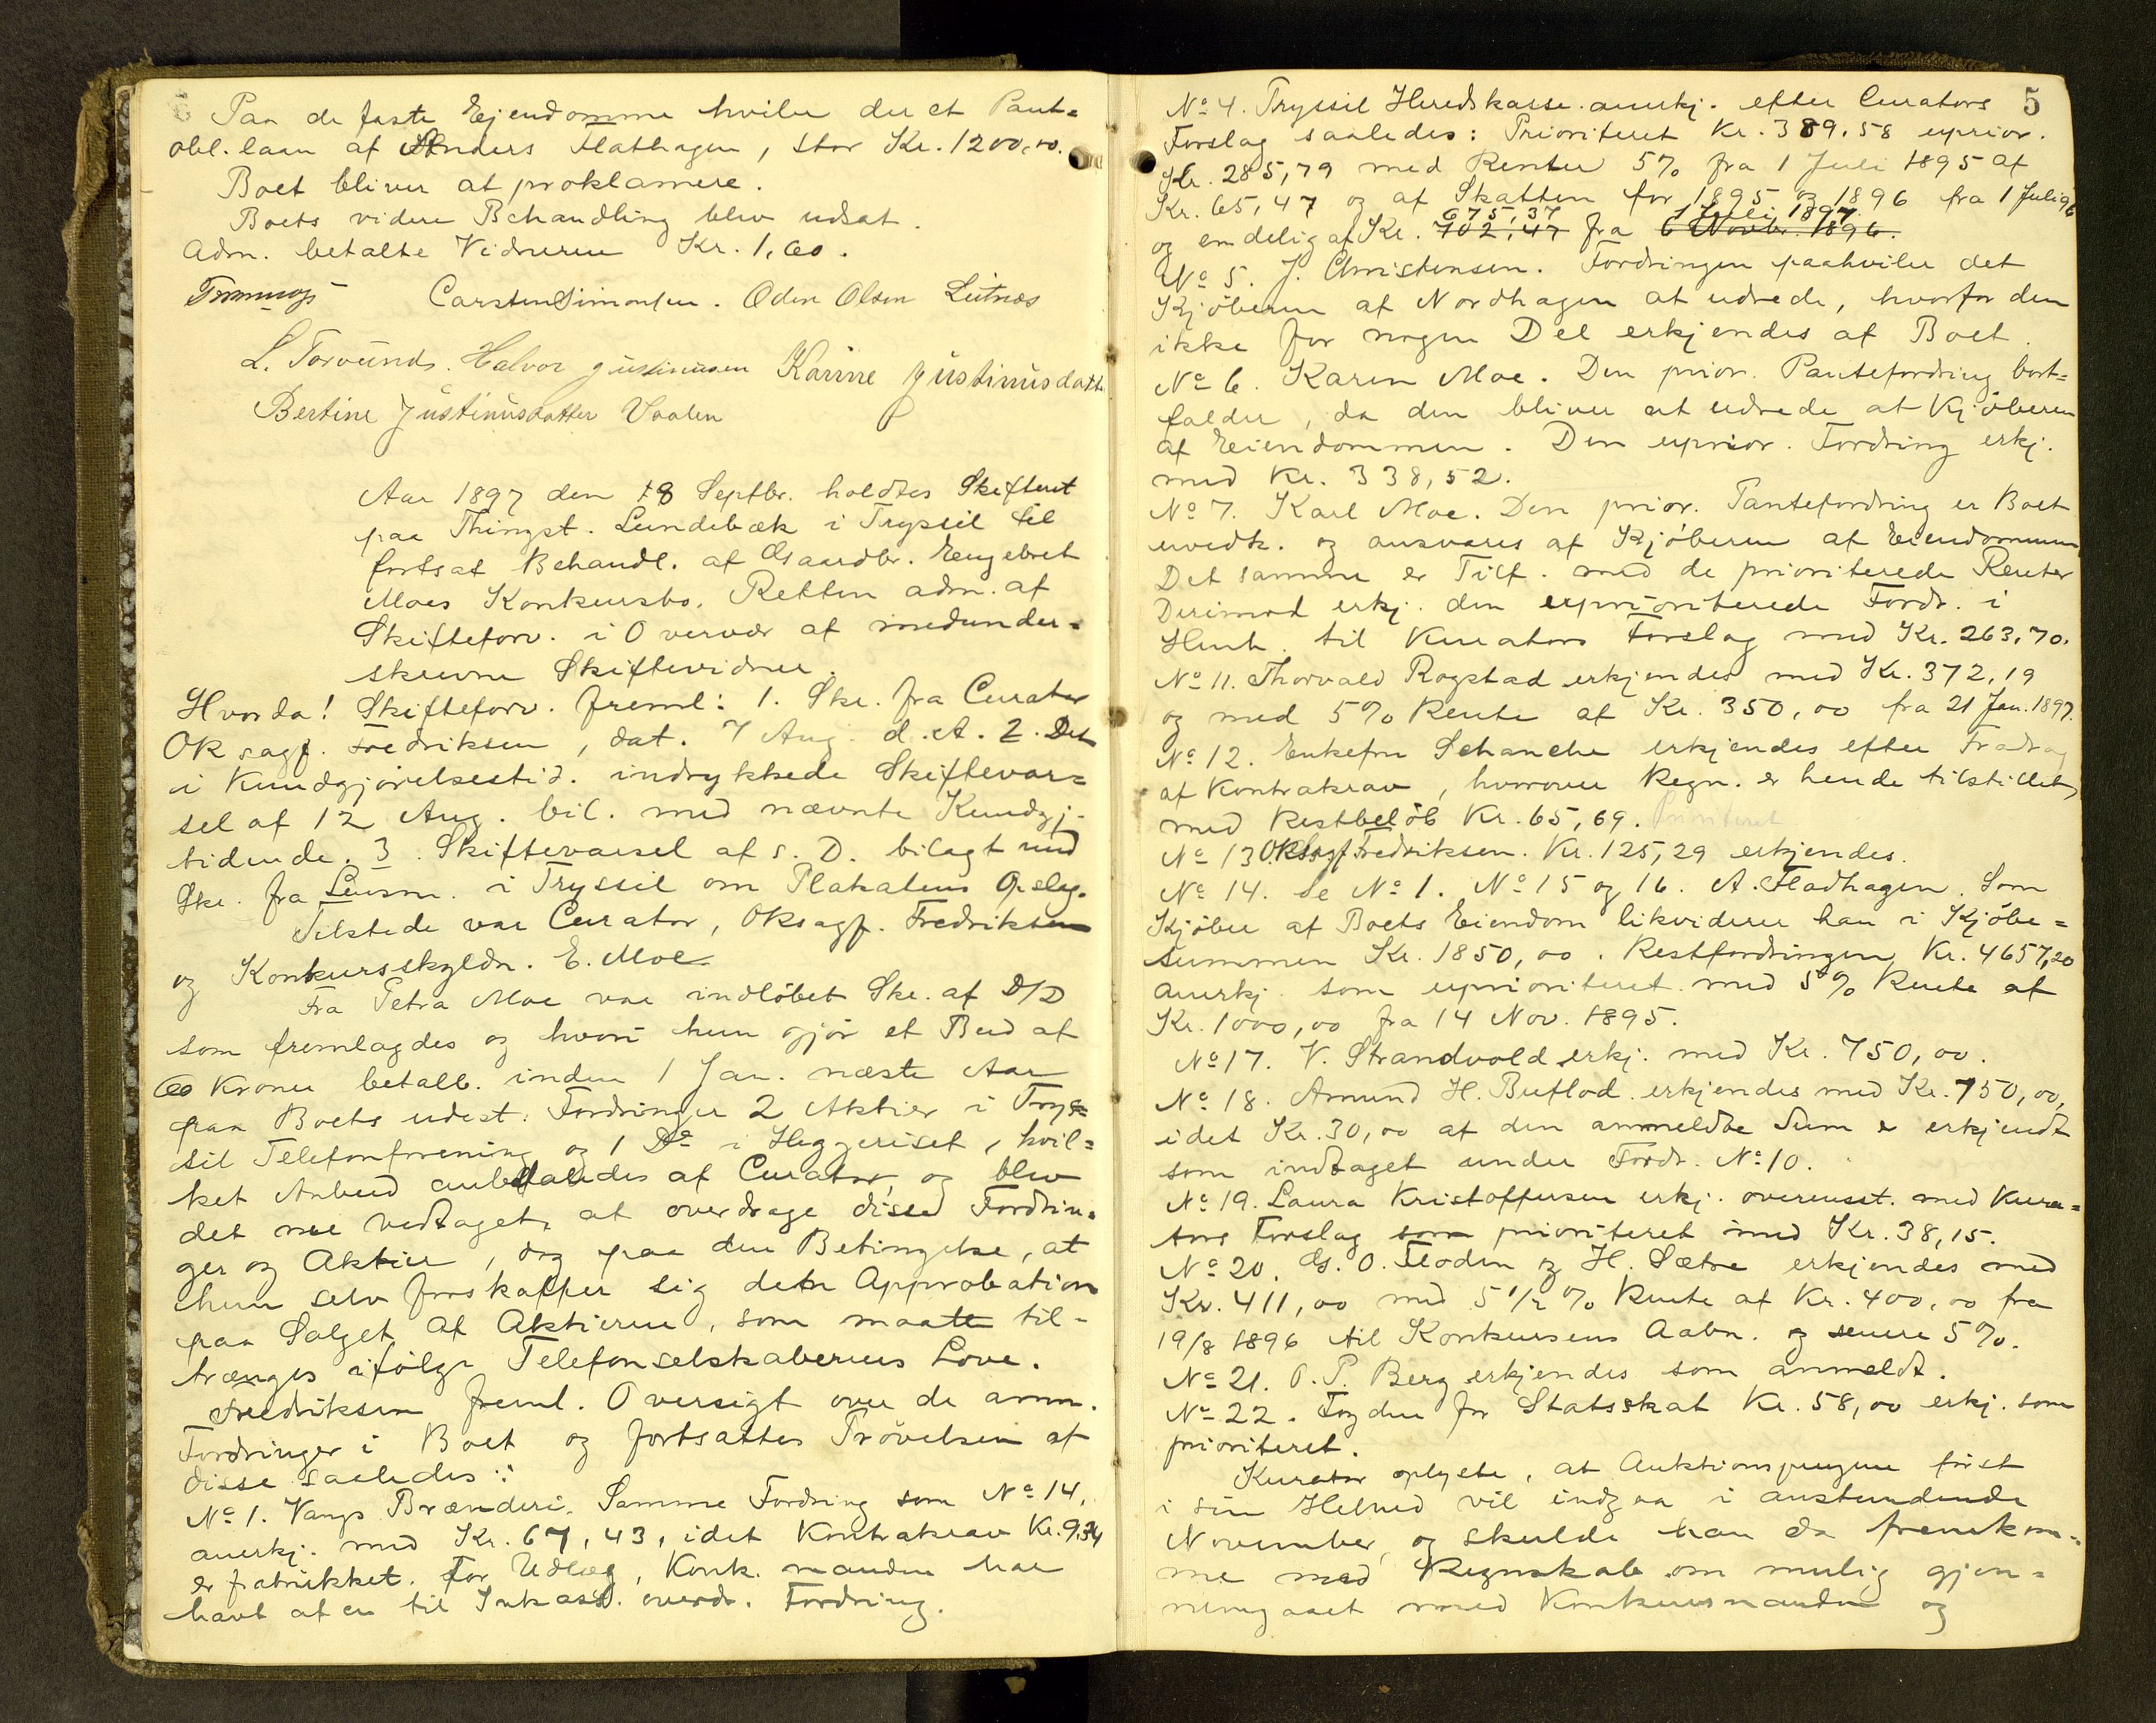 Paa de faste Ejendomme hviler der et Pant-
obl. laan af Anders Flathagen, stor Kr. 1200,00.
Boet bliver at proklamere.
Boets videre Behandling blev udsat.
Adm. betalte Vidnerne Kr. 1,60.
Carsten Simonsen. Oden Olsen Leitnæs
L. Torvund. Halvor Justinusen Karine Justinusdatt
Bertine Justinusdatter Vaalen
Aar 1897 den 18 Septbr. holdtes Skifteret
paa Thingst. Lundebæk i Trysil til
fortsat Behandl. af Gaardbr. Engebret
Moes Konkursbo. Retten adm. af
Skifteforv. i Overvær af medunder-
skrevne Skiftevidner.
Hvorda! Skifteforv. freml: 1. Skr. fra Curator
Oksagf. Fredriksen, dat. 7 Aug. d. A. 2. Det
i Kundgjörelsestid. indrykkede Skiftevar=
sel af 12 Aug. bil. med nævnte Kundgj.
tidende. 3. Skiftevarsel af s. D. bilagt med
Skr. fra Lensm. i Tryssil om Plakatens Opslag.
Tilstede var Curator, Oksagf. Fredriksen
og Konkursskyldn. E. Moe.
Fra Petra Moe var indløbet Skr. af D/D
som fremlagdes og hvori hun gjör et Bud af
60 Kroner betalb. inden 1 Jan. næste Aar
paa Boets udest. Fordringer 2 Aktier i Trys=
sil Telefonforening og 1 Do i Heggeriset, hvil=
ket Anbud anbefaledes af Curator, og blev
det vedtaget, at overdrage disse Fordrin=
ger og Aktier, dog paa den Betingelse, at
hun selv forskaffer sig den Approbation
paa Salget af Aktierne, som maatte til-
trænges ifölge Telefonselskabernes Love.
Fredriksen freml. Oversigt over de anm.
Fordringer i Boet og fortsattes Prövelsen af
disse saaledes:
No 1. Vangs Brænderi. Samme Fordring som No 14,
anerkj. med Kr. 67,43, idet Kontrakrav Kr. 9,34
er fratrukket. For Udlæg, Konk. manden har
havt af en til Inkasso. overdr. Fordring.
5
No 4. Tryssil Heredskasse anerkj. efter Curators
Forslag saaledes: Prioriteret Kr. 389,58 uprior.
Kr. 285,79 med Renter 5% fra 1 Juli 1895 af
Kr. 65,47 og af Skatten for 1895 og 1896 fra 1 Juli 96
675,37 1 Juli 1897.
og endelig af Kr. 702,47 fra 6 Novbr. 1896.
No 5. J. Christensen. Fordringen paahviler det
Kjöberen af Nordhagen at udrede, hvorfor den
ikke for nogen Del erkjendes af Boet.
No 6. Karen Moe. Den prior. Pantefordring bort=
falder, da den bliver at udrede af Kjöberen
af Eiendommen. Den uprior. Fordring erkj.
med Kr. 338,52.
No 7. Karl Moe. Den prior. Pantefordring er Boet
uvedk. og ansvares af Kjöberen af Eiendommen
Det samme er Tilf. med de prioriterede Renter
Derimod erkj. den uprioriterede Fordr. i
Henh. til Kurators Forslag med Kr. 263,70.
No 11. Thorvald Rogstad erkjendes med Kr. 372,19
og med 5% Rente af Kr. 350,00 fra 21 Jan. 1897.
No 12. Enkefru Schanche erkjendes efter Fradrag
af Kontrakrav, hvorover Regn. er hende tilstillet,
med Restbelöb Kr. 65,69. Prioriteret
No 13 Oksagf. Fredriksen. Kr. 125,29 erkjendes.
No 14. Se No 1. No 15 og 16. A. Fladhagen. Som
Kjöber af Boets Eiendom likviderer han i Kjöbe=
summen Kr. 1850,00. Restfordringen Kr. 4657,20
anerkj. som uprioriteret med 5% Rente af
Kr. 1000,00 fra 14 Nov. 1895.
No 17. V. Strandvold erkj. med Kr. 750,00.
No 18. Amund H. Buflod erkjendes med Kr. 150,00,
idet Kr. 30,00 af den anmeldte Sum er erkjendt
som indtaget under Fordr. No 10.
No 19. Laura Kristoffersen erkj. overensst. med Kura=
tors Forslag som prioriteret med Kr. 38,15.
No 20. Gs. O. Floden og H. Sætre erkjendes med
Kr. 411,00 med 5 1/2 % Rente af Kr. 400,00 fra
19/8 1896 til Konkursens Aabn. og senere 5%.
No 21. O. P. Berg erkjendes som anmeldt.
No 22. Fogden for Statsskat Kr. 58,00 erkj. som
prioriteret.
Kurator oplyste, at Auktionspengene först
i sin Helhed vil indgaa i anstundende
November, og skulde han da fremkom=
me med Regnskab om mulig gjen=
nemgaaet med Konkursmanden og